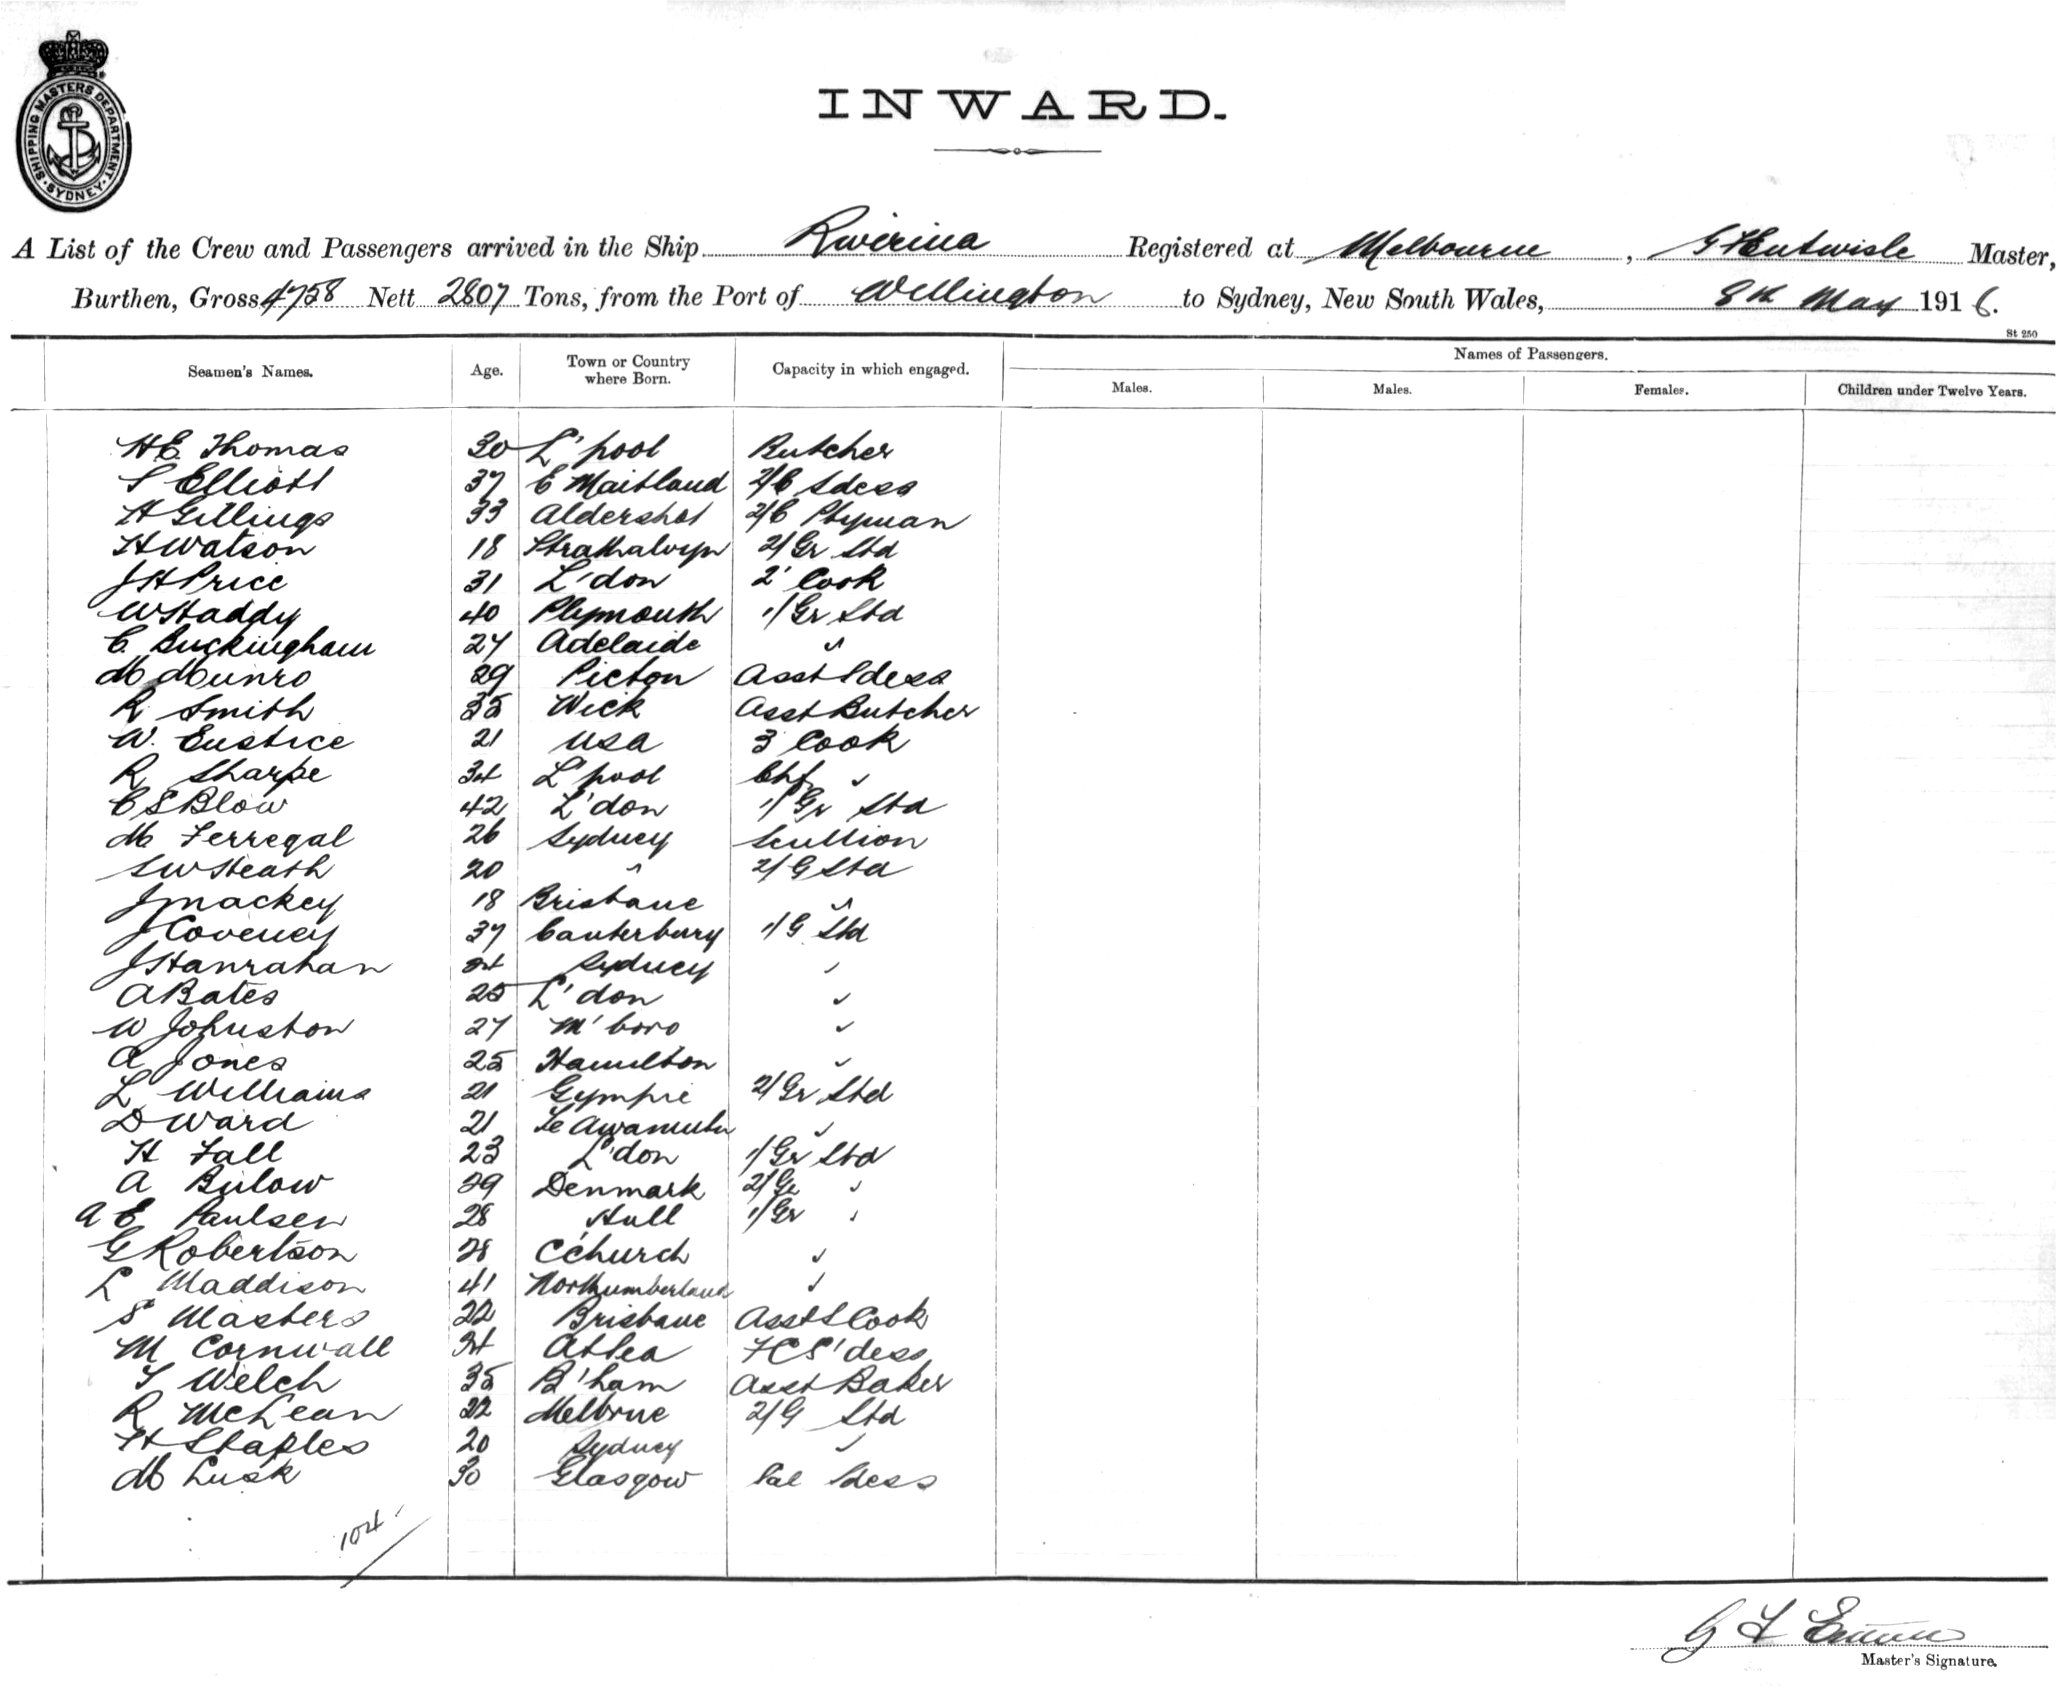 SHIPPING MASTERS DEPARTMENT · SYDNEY ·
INWARD.
A List of the Crew and Passengers arrived in the Ship Riverina Registered at Melbourne, G F Entwisle Master,
Burthen, Gross 4758 Nett 2807 Tons, from the Port of Wellington to Sydney, New South Wales, 8th May 1916.
St 250
Seamen's Names. Age. Town or Country where Born. Capacity in which engaged. Names of Passengers.
Males. Males. Females. Children under Twelve Years.
H E Thomas 30 L'pool Butcher
S Elliott 37 E Maitland 2/C Sdess
H Gillings 33 Aldershot 2/C Ptyman
H Watson 18 Strathalvyn 2/ Gr Std
J H Price 31 L'don 2' Cook
W Haddy 40 Plymouth 1/ Gr Std
C Buckingham 27 Adelaide "
M Munro 29 Picton Asst Sdess
R Smith 35 Wick Asst Butcher
W. Eustice 21 USA 3 Cook
R Sharpe 34 L'pool Chf "
C S Blow 42 L'don 1/ Gr Std
M Ferregal 26 Sydney Scullion
S W Heath 20 " 2/ G Std
J Mackey 18 Brisbane "
J Coveney 37 Canterbury 1/ G Std
J Hanrahan 24 Sydney "
A Bates 25 L'don "
W Johnston 27 M'boro "
A Jones 25 Hamilton "
L Williams 21 Gympie 2/ Gr Std
D Ward 21 Te Awamutu "
H Fall 23 L'don 1/ Gr Std
A Bulow 29 Denmark 2/ Gr "
A E Paulsen 28 Hull 1/ Gr "
G Robertson 28 C'church "
L Maddison 41 Northumberland "
S Masters 22 Brisbane Asst S Cook
M Cornwall 34 At Sea FC S'dess
T Welch 35 B'ham Asst Baker
R McLean 22 Melbrne 2/ G Std
H Staples 20 Sydney "
M Lusk 30 Glasgow Sal Sdess
104
G F
Master's Signature.